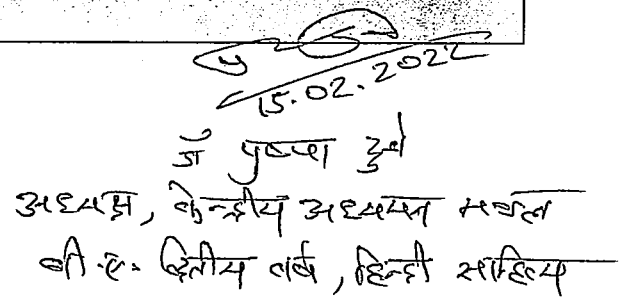 15.02.2022
डॉ पुष्पा दुबे
अध्यक्ष, केन्द्रीय अध्ययन मण्डल
बी.ए. द्वितीय वर्ष, हिन्दी साहित्य